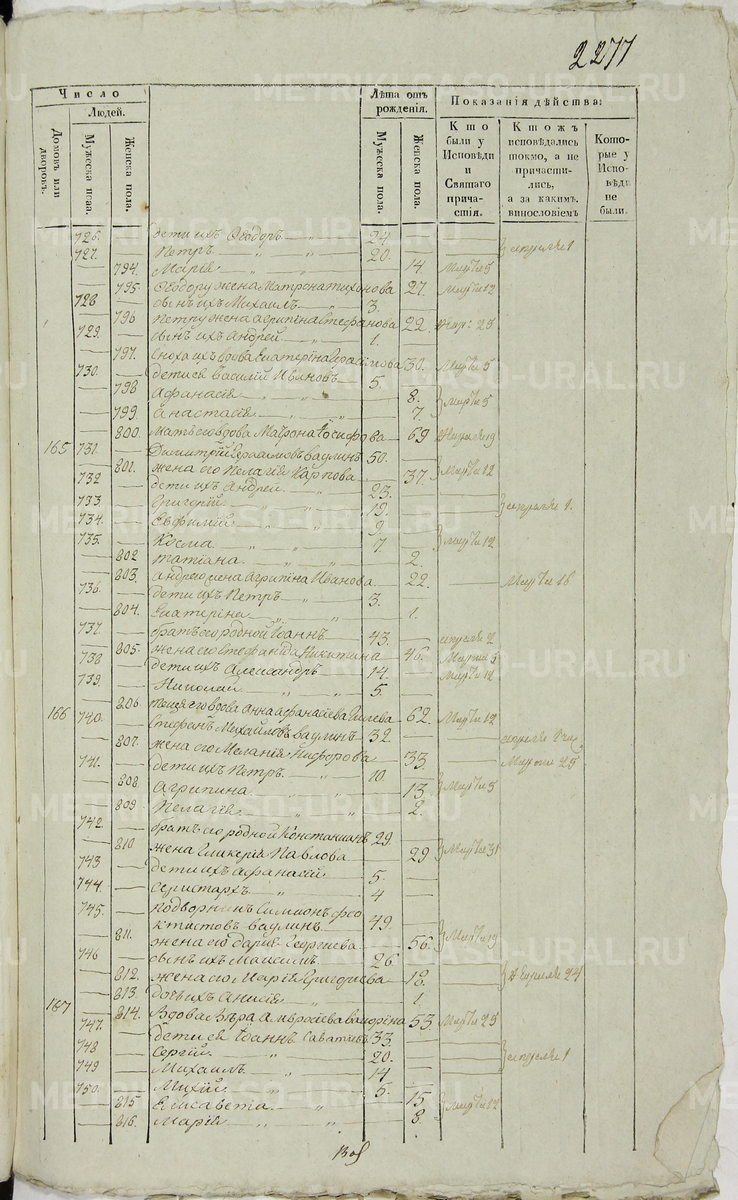 2277
Число
Людей.
Домовъ или дворовъ.
Мужеска пола.
Женска пола.
Лѣта отъ рожденія.
Мужеска пола.
Женска пола.
Показанія дѣйства:
Кто были у Исповѣди и Святаго причастія.
Ктожъ исповѣдались токмо, а не причастились, а за какимъ винословіемъ
Которые у Исповѣди не были.
726. дети ихъ Ѳеодоръ 24
727. Петръ 20. апреля 1
794. Марія 14. Марта 5
795. Ѳеодору жена Матрона Тихонова 27. Марта 12
728 сынъ ихъ Михаилъ 3.
796 Петру жена Агрипина Стефанова 22. 25
729. сынъ ихъ Андрей 1.
797. сноха ихъ вдова Екатерина 30. Марта 5
730. дети ея Василій Ивановъ 5.
798 Афанасія 8. Марта 5
799. Анастасія 7
800. мать его вдова Матрона Іосифова 69 19
165 731. Димитрій Ваулинъ 50.
801. жена его Пелагія Карпова 37. Марта 12
732 дети ихъ Андрей 23.
733 Григорій 19. апреля 1.
734. Евфимій 9
735. Косма 7 Марта 12
802 Татіана 2.
803. Андрею жена Агрипина Иванова 22. Марта 18
736. дети ихъ Петръ 3.
804. Екатерина 1.
737. братъ его родной Іоаннъ 43. апреля 2
805. жена его Стефанида Никитина 46. Марта 5
738 дети ихъ Александръ 14. Марта 12
739. Николай 5
806. теща его вдова Анна Афанасіева 62. Марта 12
166 740. Стефанъ Михайловъ Ваулинъ 32. апреля
807. жена его Меланія Никифорова 33 Марта 25
741. дети ихъ Петръ 10.
808. Агрипина 13. Марта 5
809. Пелагія 2.
742. братъ его родной Константинъ 29.
810. жена Гликерія Павлова 29 Марта 31
743 дети ихъ Афанасій 5.
744. Аристархъ 4
745. подворникъ Симионъ Фео
ктистовъ Ваулинъ 49.
811. жена его Дарія Георгіева 56. Марта 19
746 сынъ ихъ Максимъ 26.
812. жена его Марія Григориева 18. Апреля 24
813. дочь ихъ Анисія 1.
167 814. Вдова Вѣра Амвросіева 53 Марта 25
747. дети ея Іоаннъ Саватинъ 33
748 Сергій 20. апреля 1
749 Михаилъ 14
750. Михій 5.
815 Елисавета 15 Марта 12
816. Марія 8.
METRIKI.GASO-URAL.RU